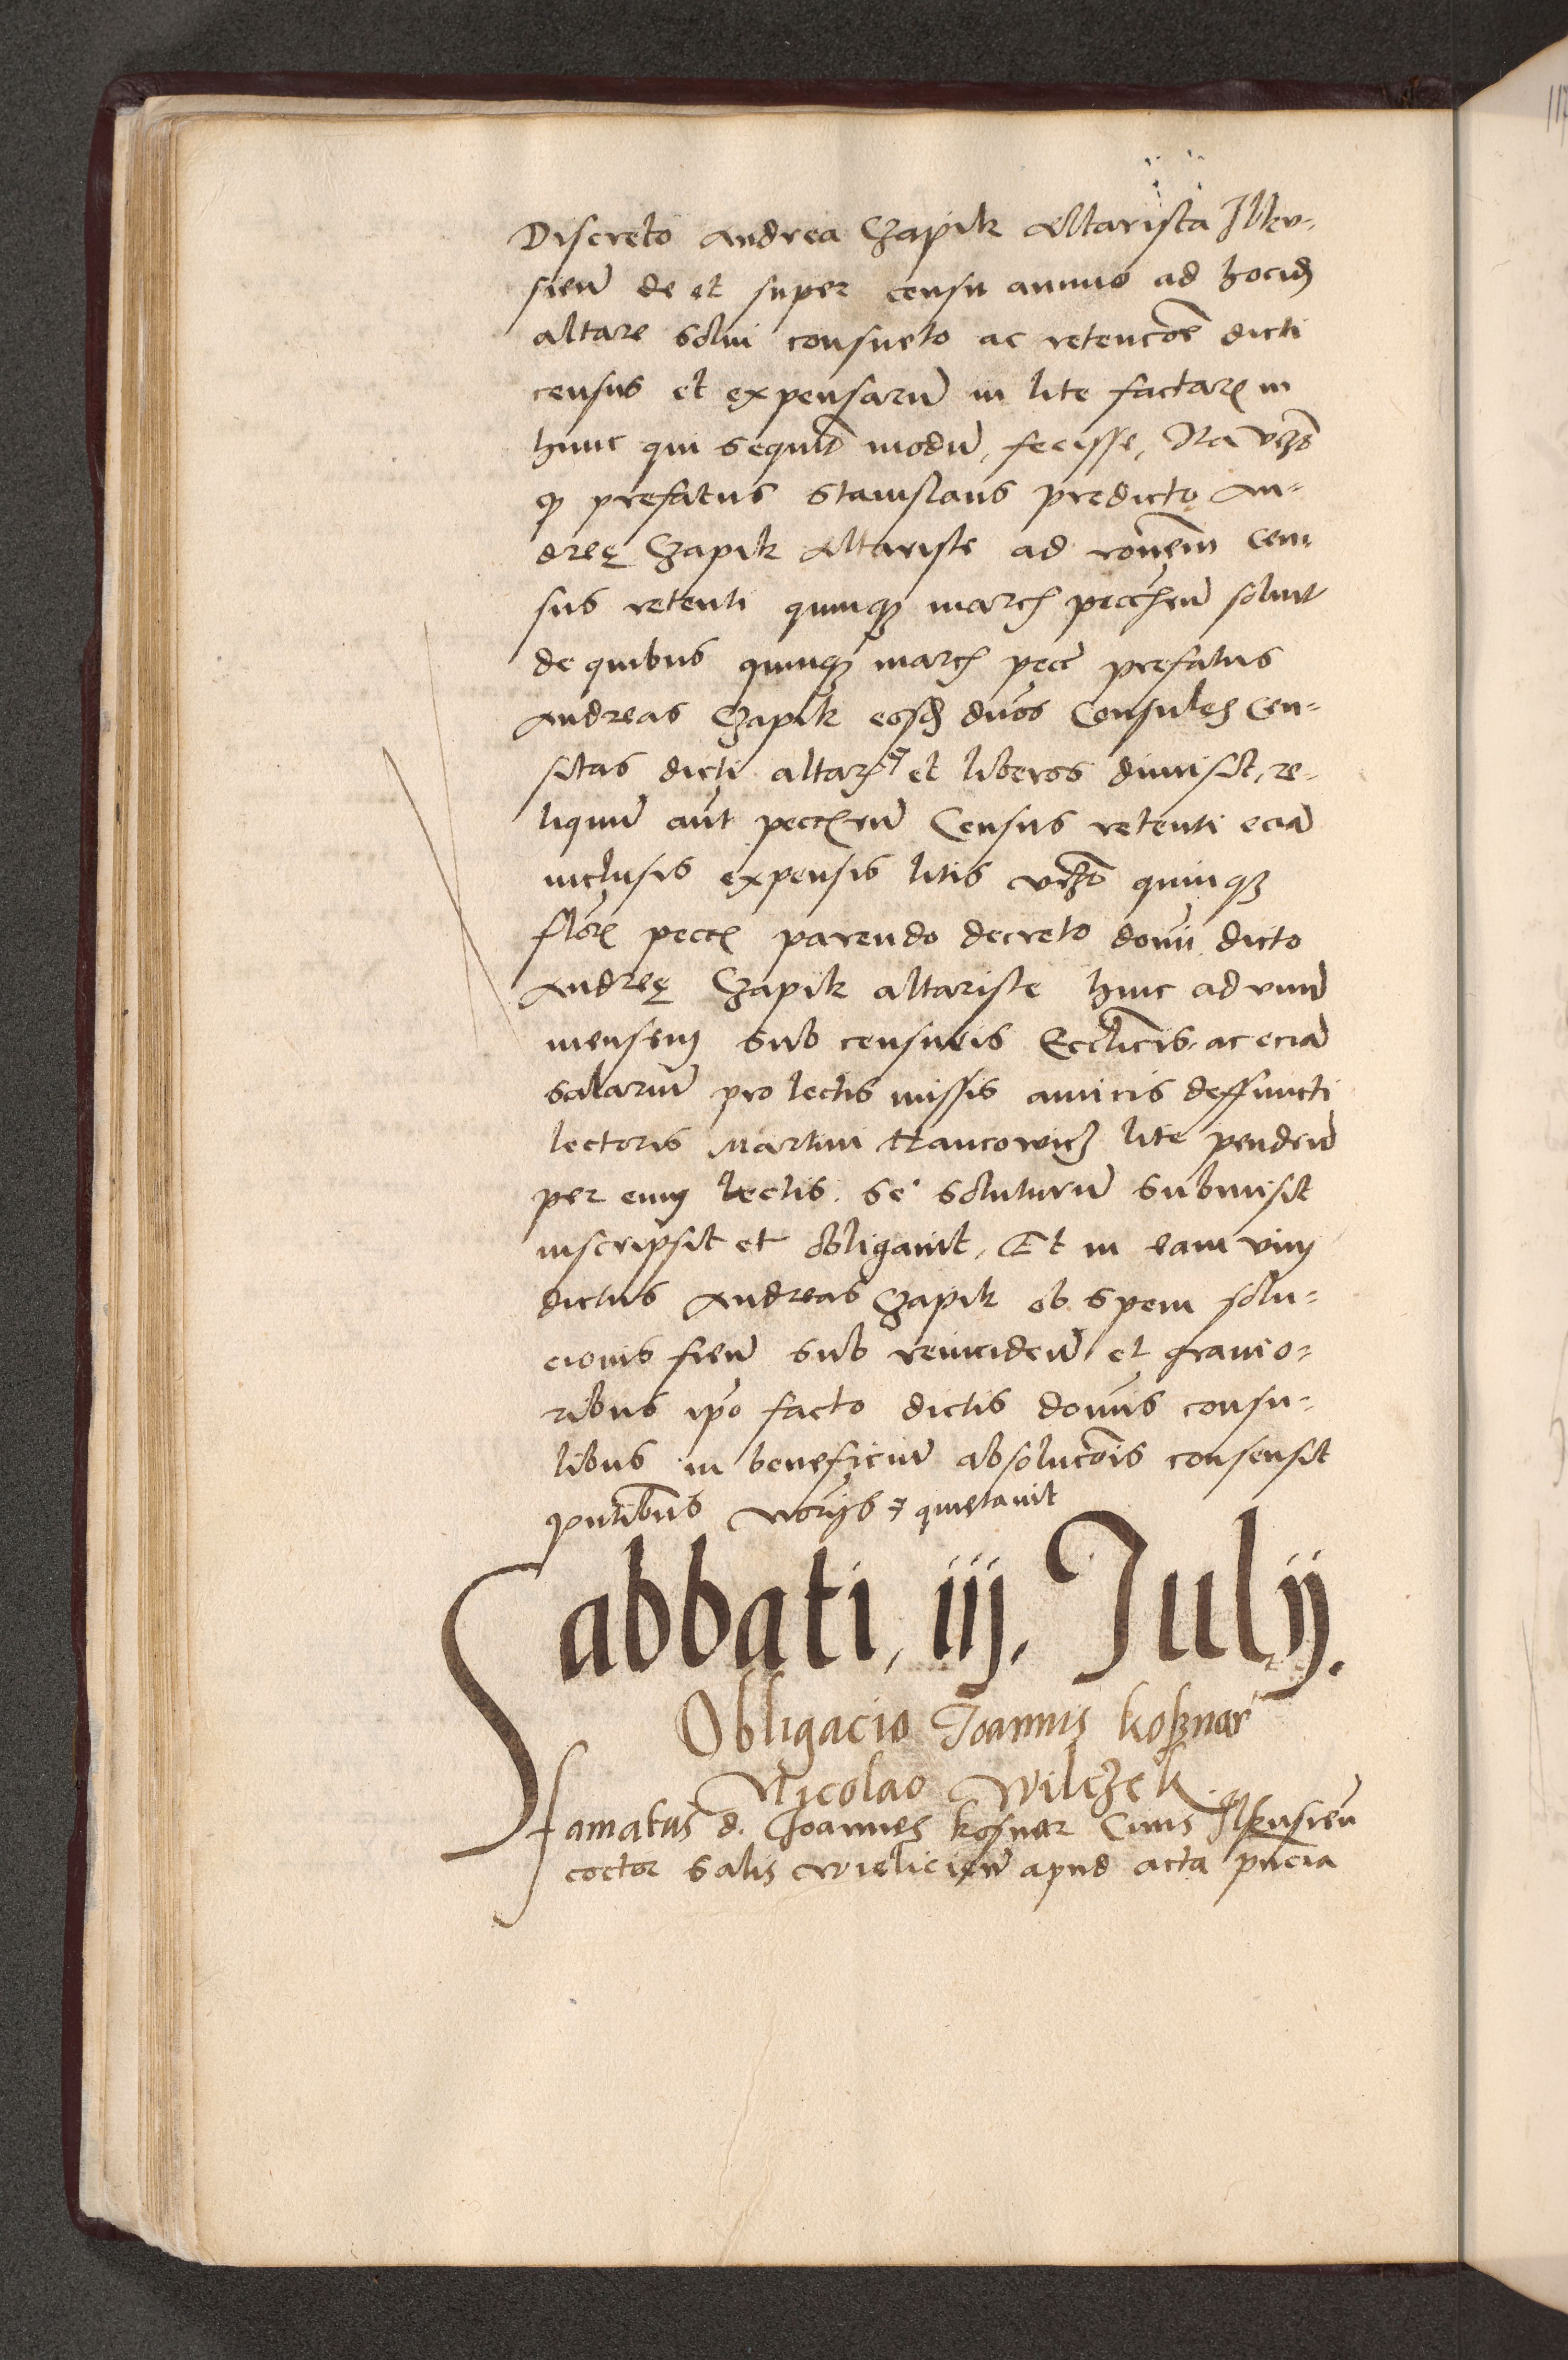 Discreto Andrea Czapik Altarista Ilku-
sien̄ de et super censu annuo ad hocid
altare solui consueto ac retencōe dicti
census et expensarū in lite factar in
hunc qui sequit̄ modū, fecisse, Ita vcz
q prefatus Stanislaus predicto An-
dreę Czapik Altariste ad roem̄ cen-
sus retenti quinq march pecc̄rū soluit
de quibus quinq march pecc̄ prefatus
Andreas Czapik eosd duos Consules Cen-
sitas dicti altar et liberos dimisit, re-
liquū aūt peccrū Census retenti eciā
inclusis expensis litis vcz quinq
flor pecc parendo decreto domi dicto
Andreę Czapik altariste hinc ad vnū
mensem sub censuris Ecclicis ac eciā
salariū pro lectis missis amicis deffuncti
lectoris Martini Hancowicz lite pendeñ
per eum lectis. se soluturū submisit
inscripsit et obligauit, Et in eam vim
dictus Andreas Czapik ob spem solu-
cionis fien̄ sub reinciden̄ et grauio-
ribus ip̄o facto dictis domis consu-
libus in beneficiū absolucōis consensit
pntibus voryb quietauit
Sabbati, iij, Julij.
Obligacio Joannis koßnar
Nicolao Wilczek
Famatus d. Joannes kosnar Ciuis Ilkusien̄
coctor salis wielicień apud acta pn̄cia
117